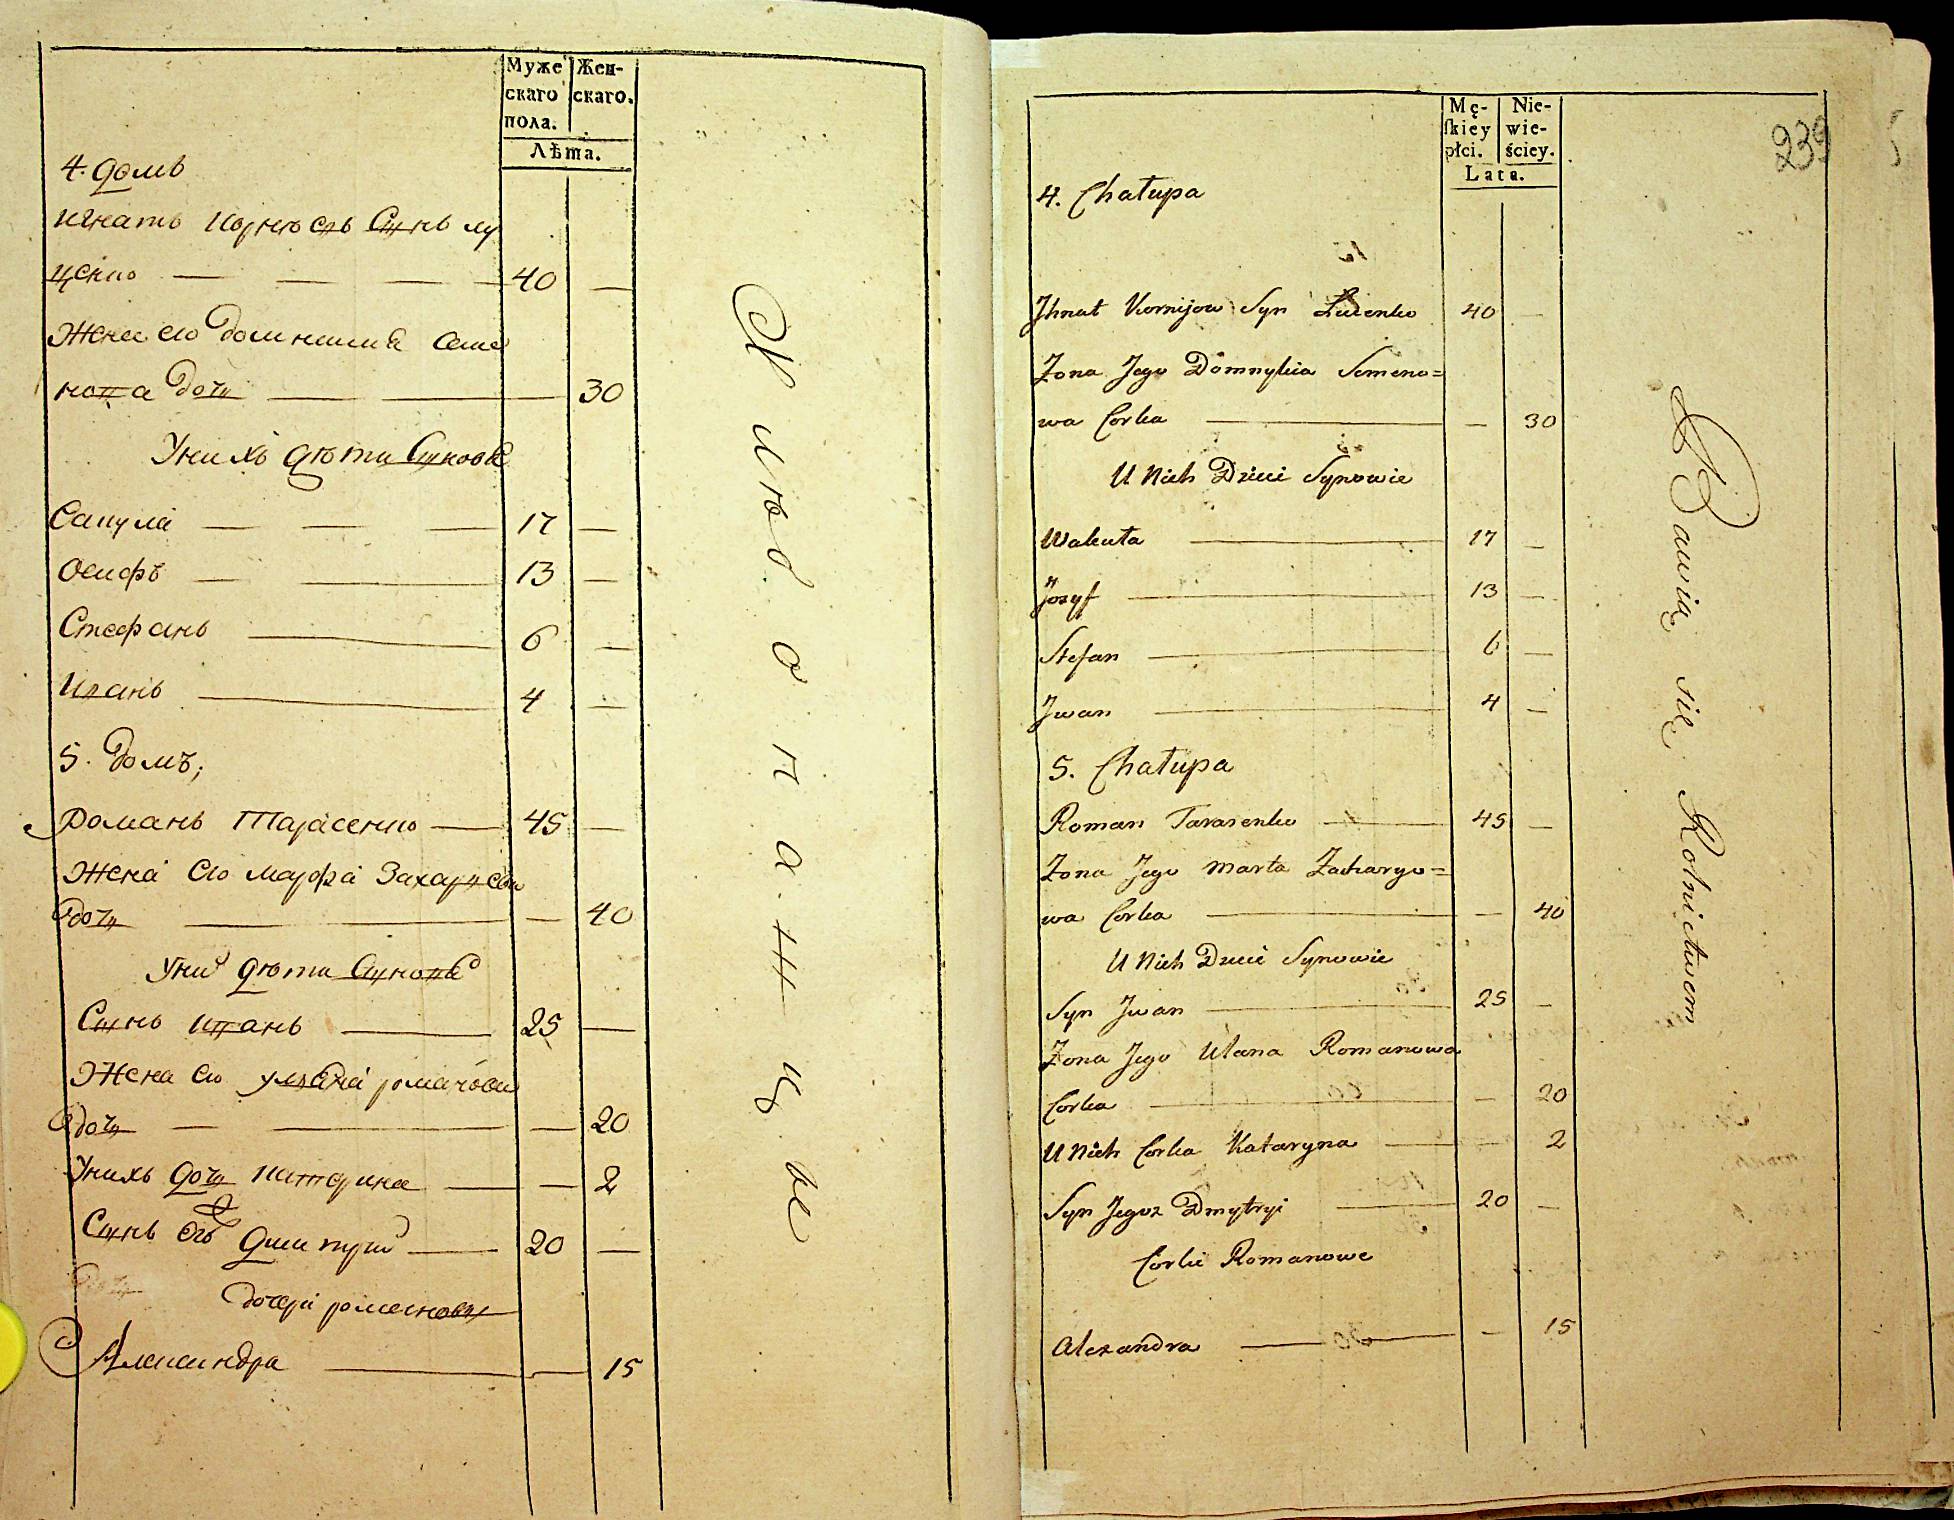 Муже
скаго
пола.
Жен-
скаго.
Лѣта.
4. домъ
Игнатъ Корнѣевъ Сынъ лу
ценко — 40 —
Жена его Домникия Семе
нова дочь — 30
У нихъ дѣти Сынове
17 —
Осифъ — 13 —
Стефанъ — 6 —
Иванъ — 4 —
5. домъ,
Романъ Тарасенко — 45 —
Жена его марфа Захарцева
дочь — 40
У них дѣти Сынове
Сынъ иванъ — 25 —
Жена его уляна романова
дочь — — 20
У нихъ дочь катерина — — 2
Сынъ его дмитрий — 20 —
дочери романовы
Александра — — 15
Хлѣбопашцы
239
5
Mę-
skiey
płci.
Nie-
wie-
ściey.
Lata.
4. Chałupa
Jhnat Kornijow Syn Łucenko 40 —
Żona Jego Domnykia Semeno=
wa Corka — — 30
U Nich Dzieci Synowie
Wakuła — 17 —
Józyf — 13 —
Stefan — 6 —
Jwan — 4 —
5. Chałupa
Roman Tarasenko — 45 —
Żona Jego Marta Zacharyo=
wa Corka — — 40
U Nich Dzieci Synowie
Syn Jwan — 25 —
Żona Jego Ulana Romanowa
Corka — — 20
U Nich Corka Kataryna — — 2
Syn Jegoż Dmytryi — 20 —
Corki Romanowe
Alexandra — — 15
Bawią się Rolnictwem